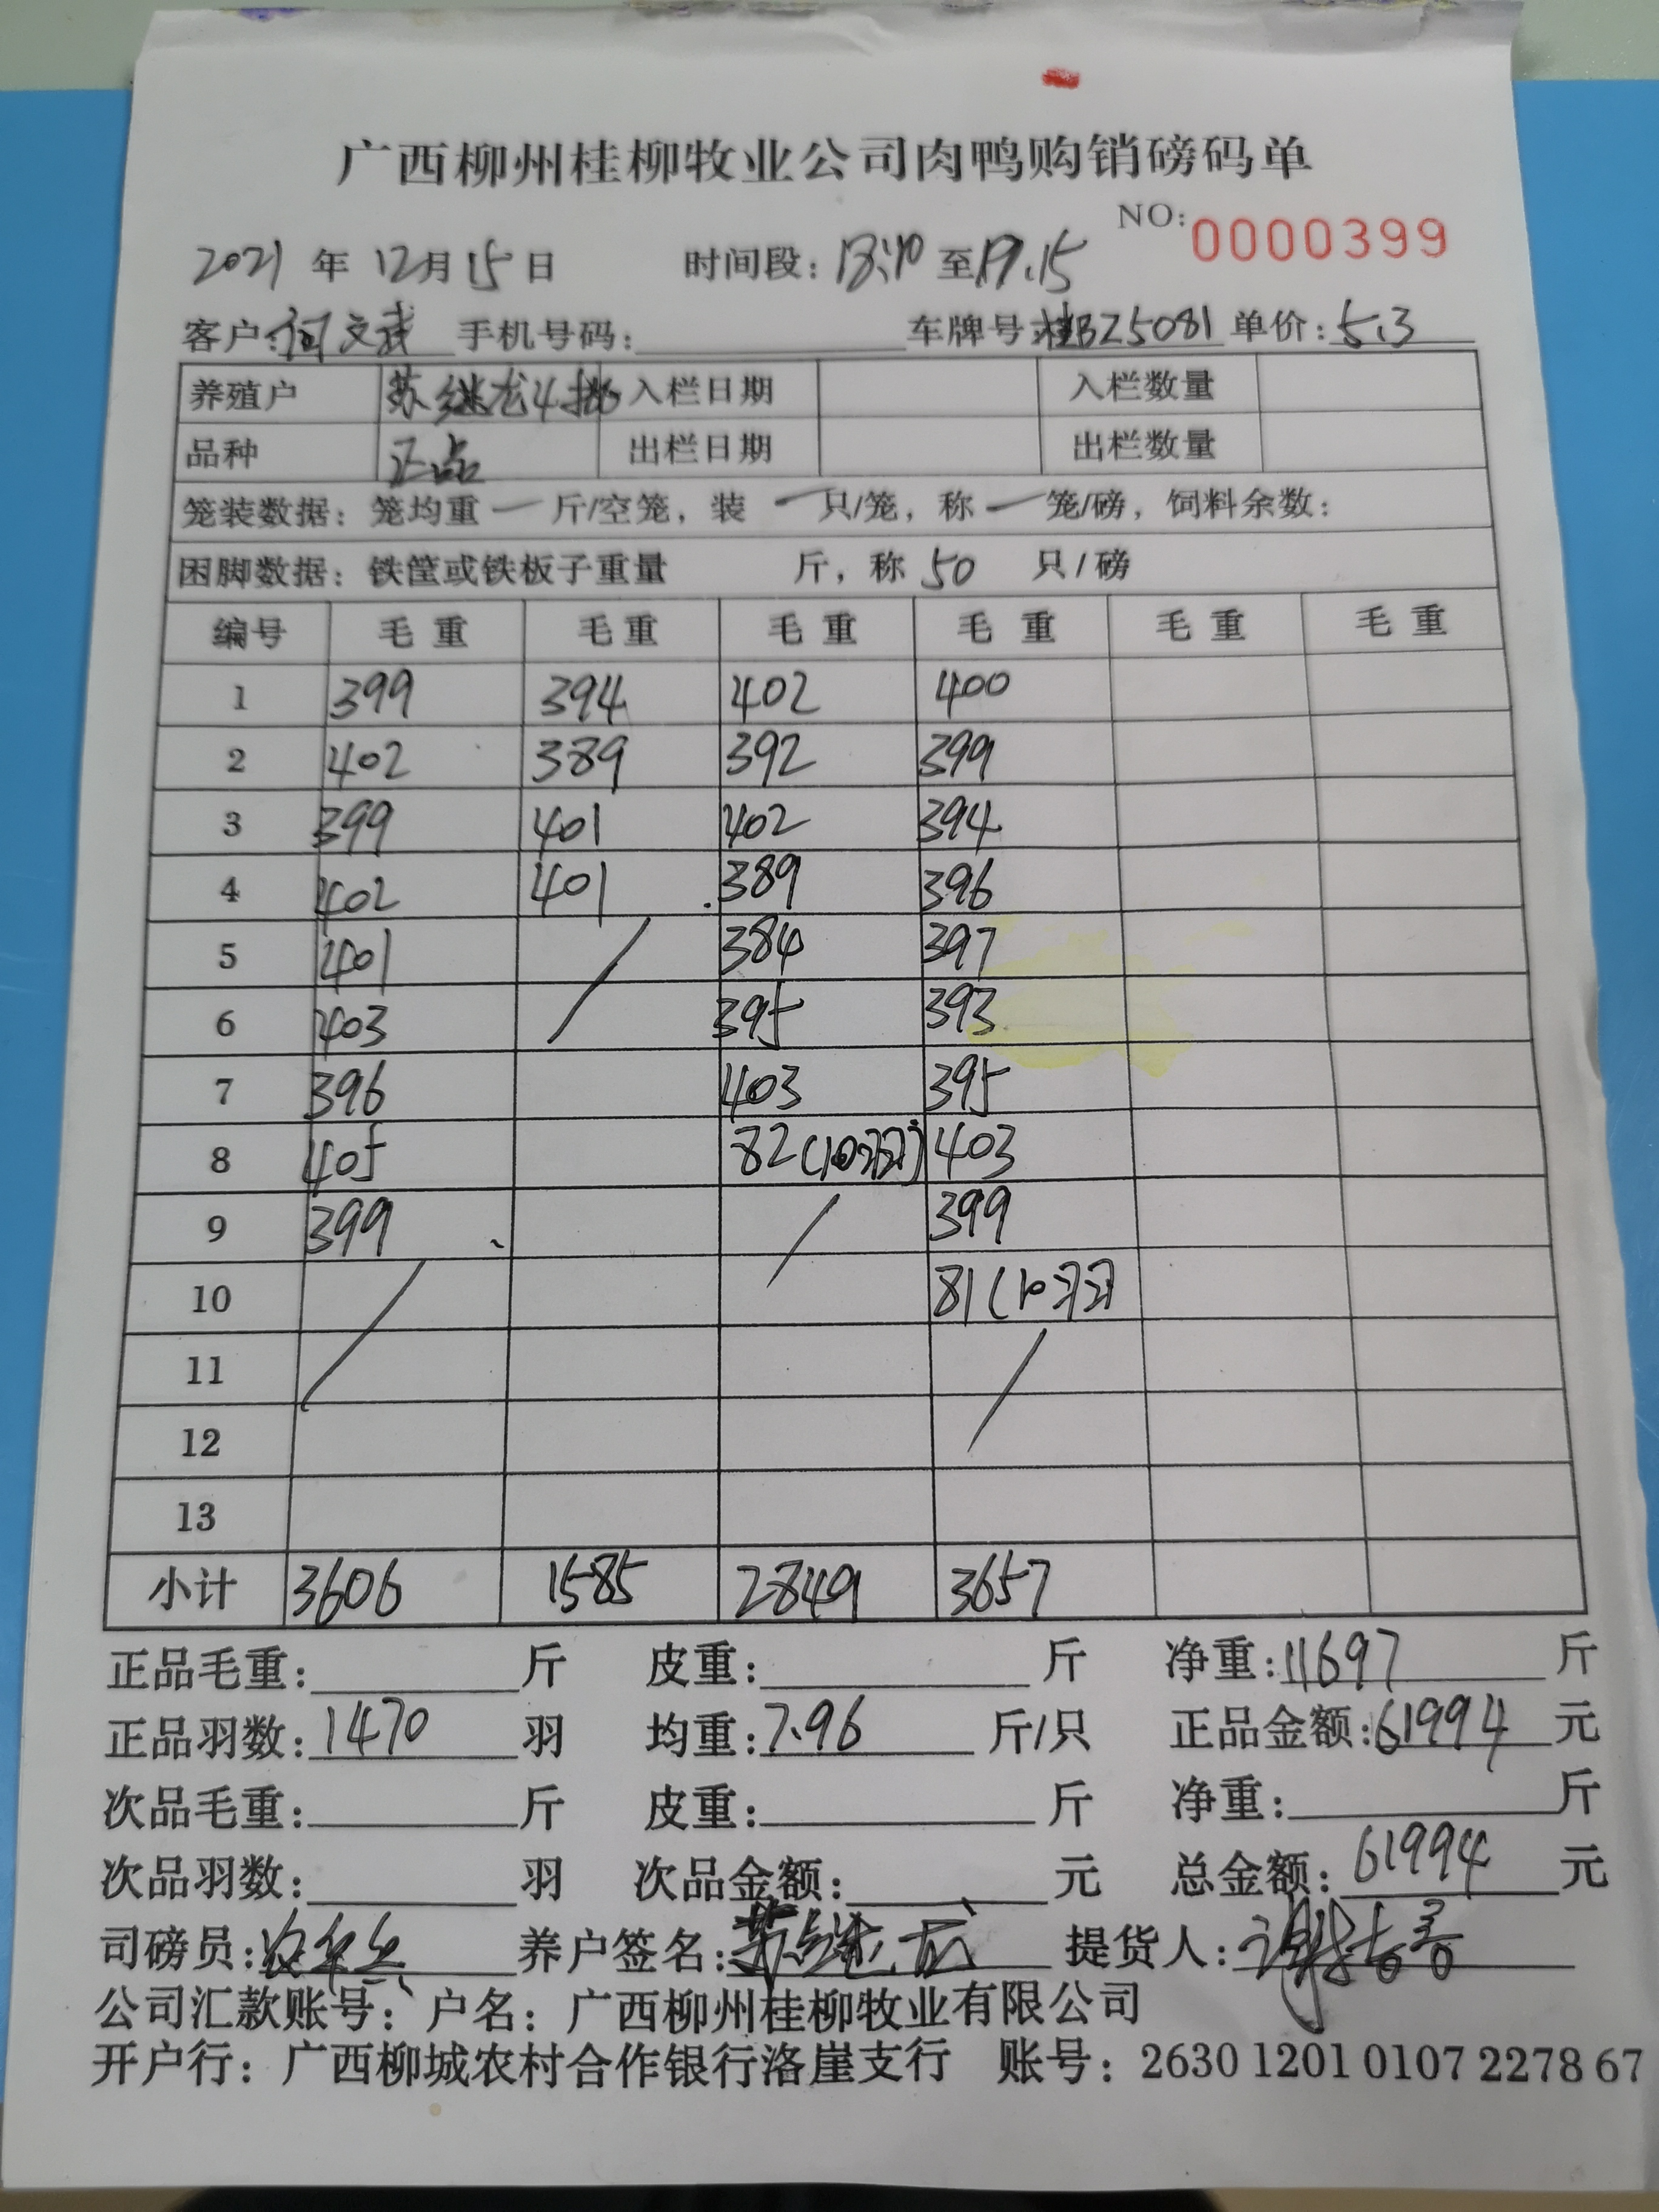 广西柳州桂柳牧业公司肉鸭购销磅码单
NO: 0000399
2021 年 12月 15 日 时间段: 至 19.15
客户: 何文武 手机号码: 车牌号: 桂BZ5081 单价: 5.3
养殖户 苏继龙4挪 入栏日期 入栏数量
品种 正品 出栏日期 出栏数量
笼装数据: 笼均重 一 斤/空笼, 装 一 只/笼, 称 一 笼/磅, 饲料余数:
困脚数据: 铁筐或铁板子重量 斤, 称 50 只/磅
编号 毛重 毛重 毛重 毛重 毛重 毛重
1 399 394 402 400
2 402 389 392 399
3 399 401 402 394
4 402 401 389 396
5 401 384 397
6 403 395 393
7 396 403 395
8 405 82(10羽) 403
9 399 399
10 81(10羽
11
12
13
小计 3606 1585 2849 3657
正品毛重: 斤 皮重: 斤 净重: 11697 斤
正品羽数: 1470 羽 均重: 7.96 斤/只 正品金额: 61994 元
次品毛重: 斤 皮重: 斤 净重: 斤
次品羽数: 羽 次品金额: 元 总金额: 61994 元
司磅员: 养户签名: 苏继龙 提货人:
公司汇款账号: 户名: 广西柳州桂柳牧业有限公司
开户行: 广西柳城农村合作银行洛崖支行 账号: 2630 1201 0107 2278 67